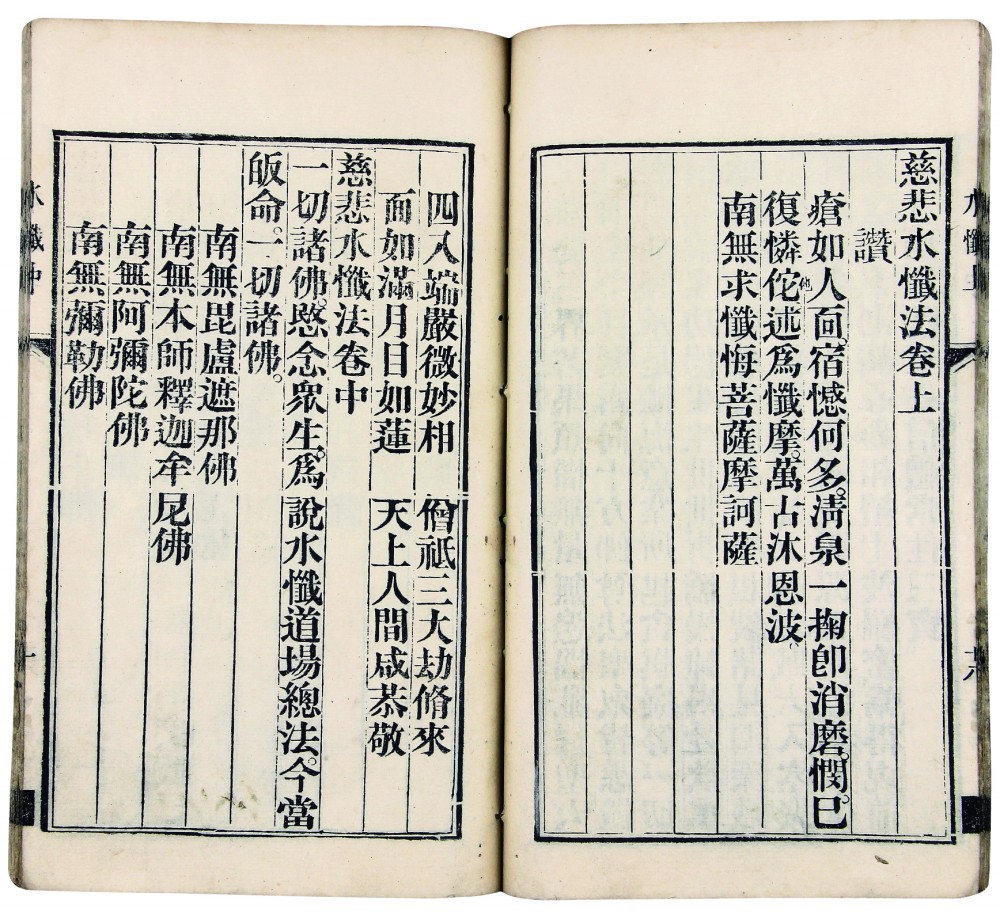 慈悲水懺法卷上
讚
瘡如人面。宿憾何多。淸泉一掬卽消磨。憫已
復憐佗。述爲懺摩。萬古沐恩波。
南無求懺悔菩薩摩訶薩
四八端嚴微妙相　僧祇三大劫脩來
面如滿月目如蓮　天上人間咸恭敬
慈悲水懺法卷中
一切諸佛。愍念衆生。爲說水懺道場總法。今當
皈命。一切諸佛。
南無毘盧遮那佛
南無本師釋迦牟尼佛
南無阿彌陀佛
南無彌勒佛
水懺中